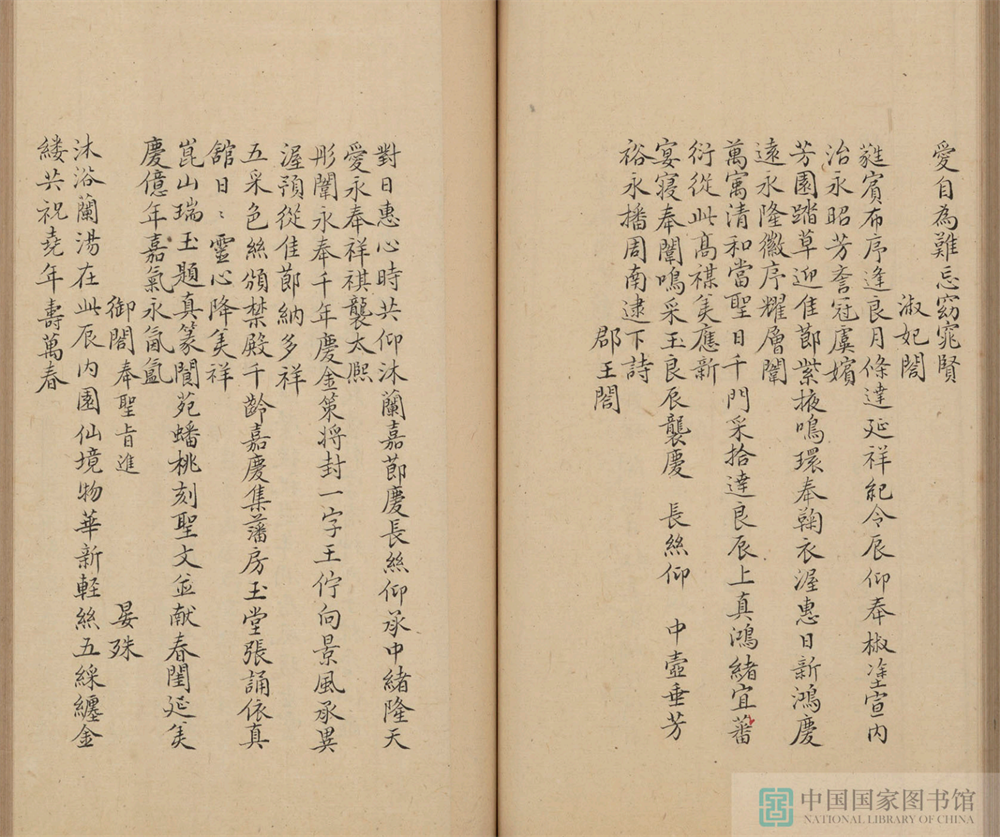 愛自為難忘窈窕賢
淑妃閤
蕤賓布序逢良月條達延祥紀令辰仰奉椒塗宣內
治永昭芳䅲冠虞嬪
芳園踏草迎佳節紫掖鳴環奉鞠衣渥惠日新鴻慶
遠永隆徽序耀層闈
萬寓清和當聖日千門采拾達良辰上真鴻緒宜蕃
衍從此高禖美應新
宴寢奉闈鳴采玉良辰襲慶 長絲仰 中壼垂芳
裕永播周南逮下詩
郡王閤
對日惠心時共仰沐蘭嘉節慶長絲仰承中緒隆天
愛永奉祥祺襲太熙
彤闈永奉千年慶金策將封一字王佇向景風承異
渥預從佳節納多祥
五采色絲頒禁殿千齡嘉慶集藩房玉堂張誦依真
舘日〻靈心降美祥
崑山瑞玉題真篆閬苑蟠桃刻聖文並献春闈延美
慶億年嘉氣永氤氳
御閤奉聖旨進 晏殊
沐浴蘭湯在此辰內園仙境物華新輕絲五綵纏金
縷共祝堯年壽萬春
中国国家图书馆
NATIONAL LIBRARY OF CHINA